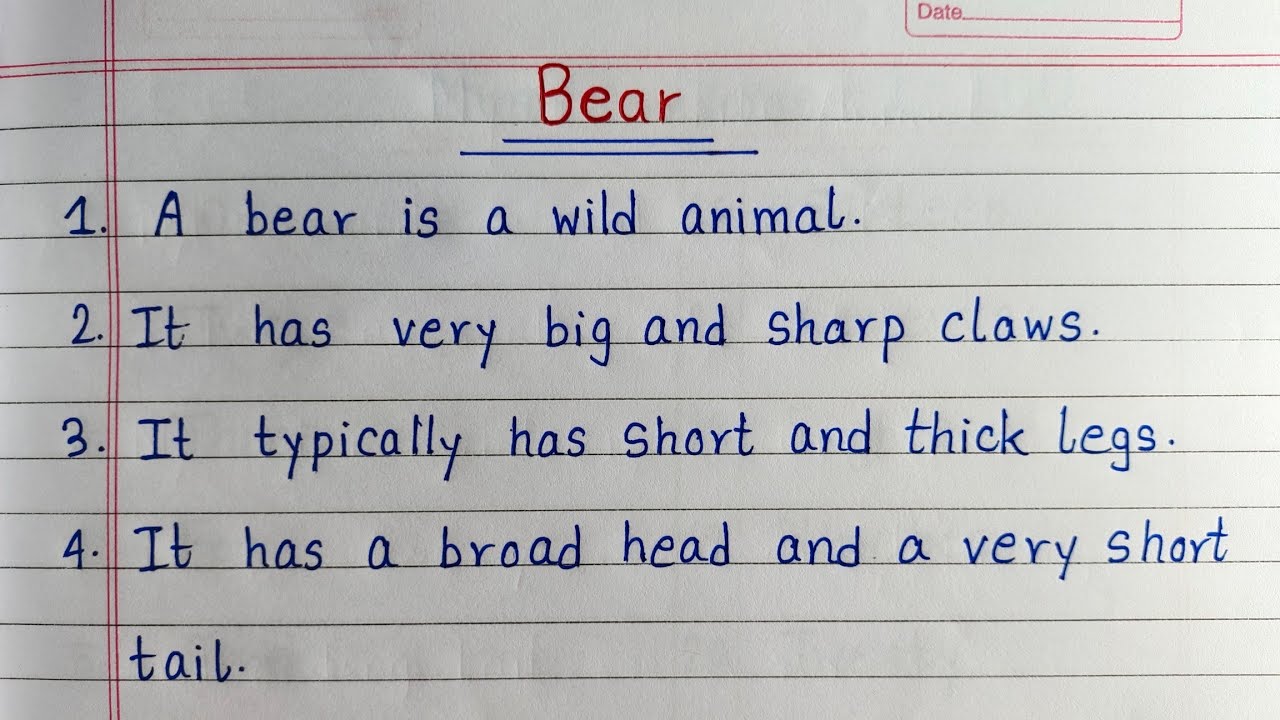 Date
Bear
1. A bear is a wild animal.
2. It has very big and sharp claws.
3. It typically has short and thick legs.
4. It has a broad head and a very short
tail.